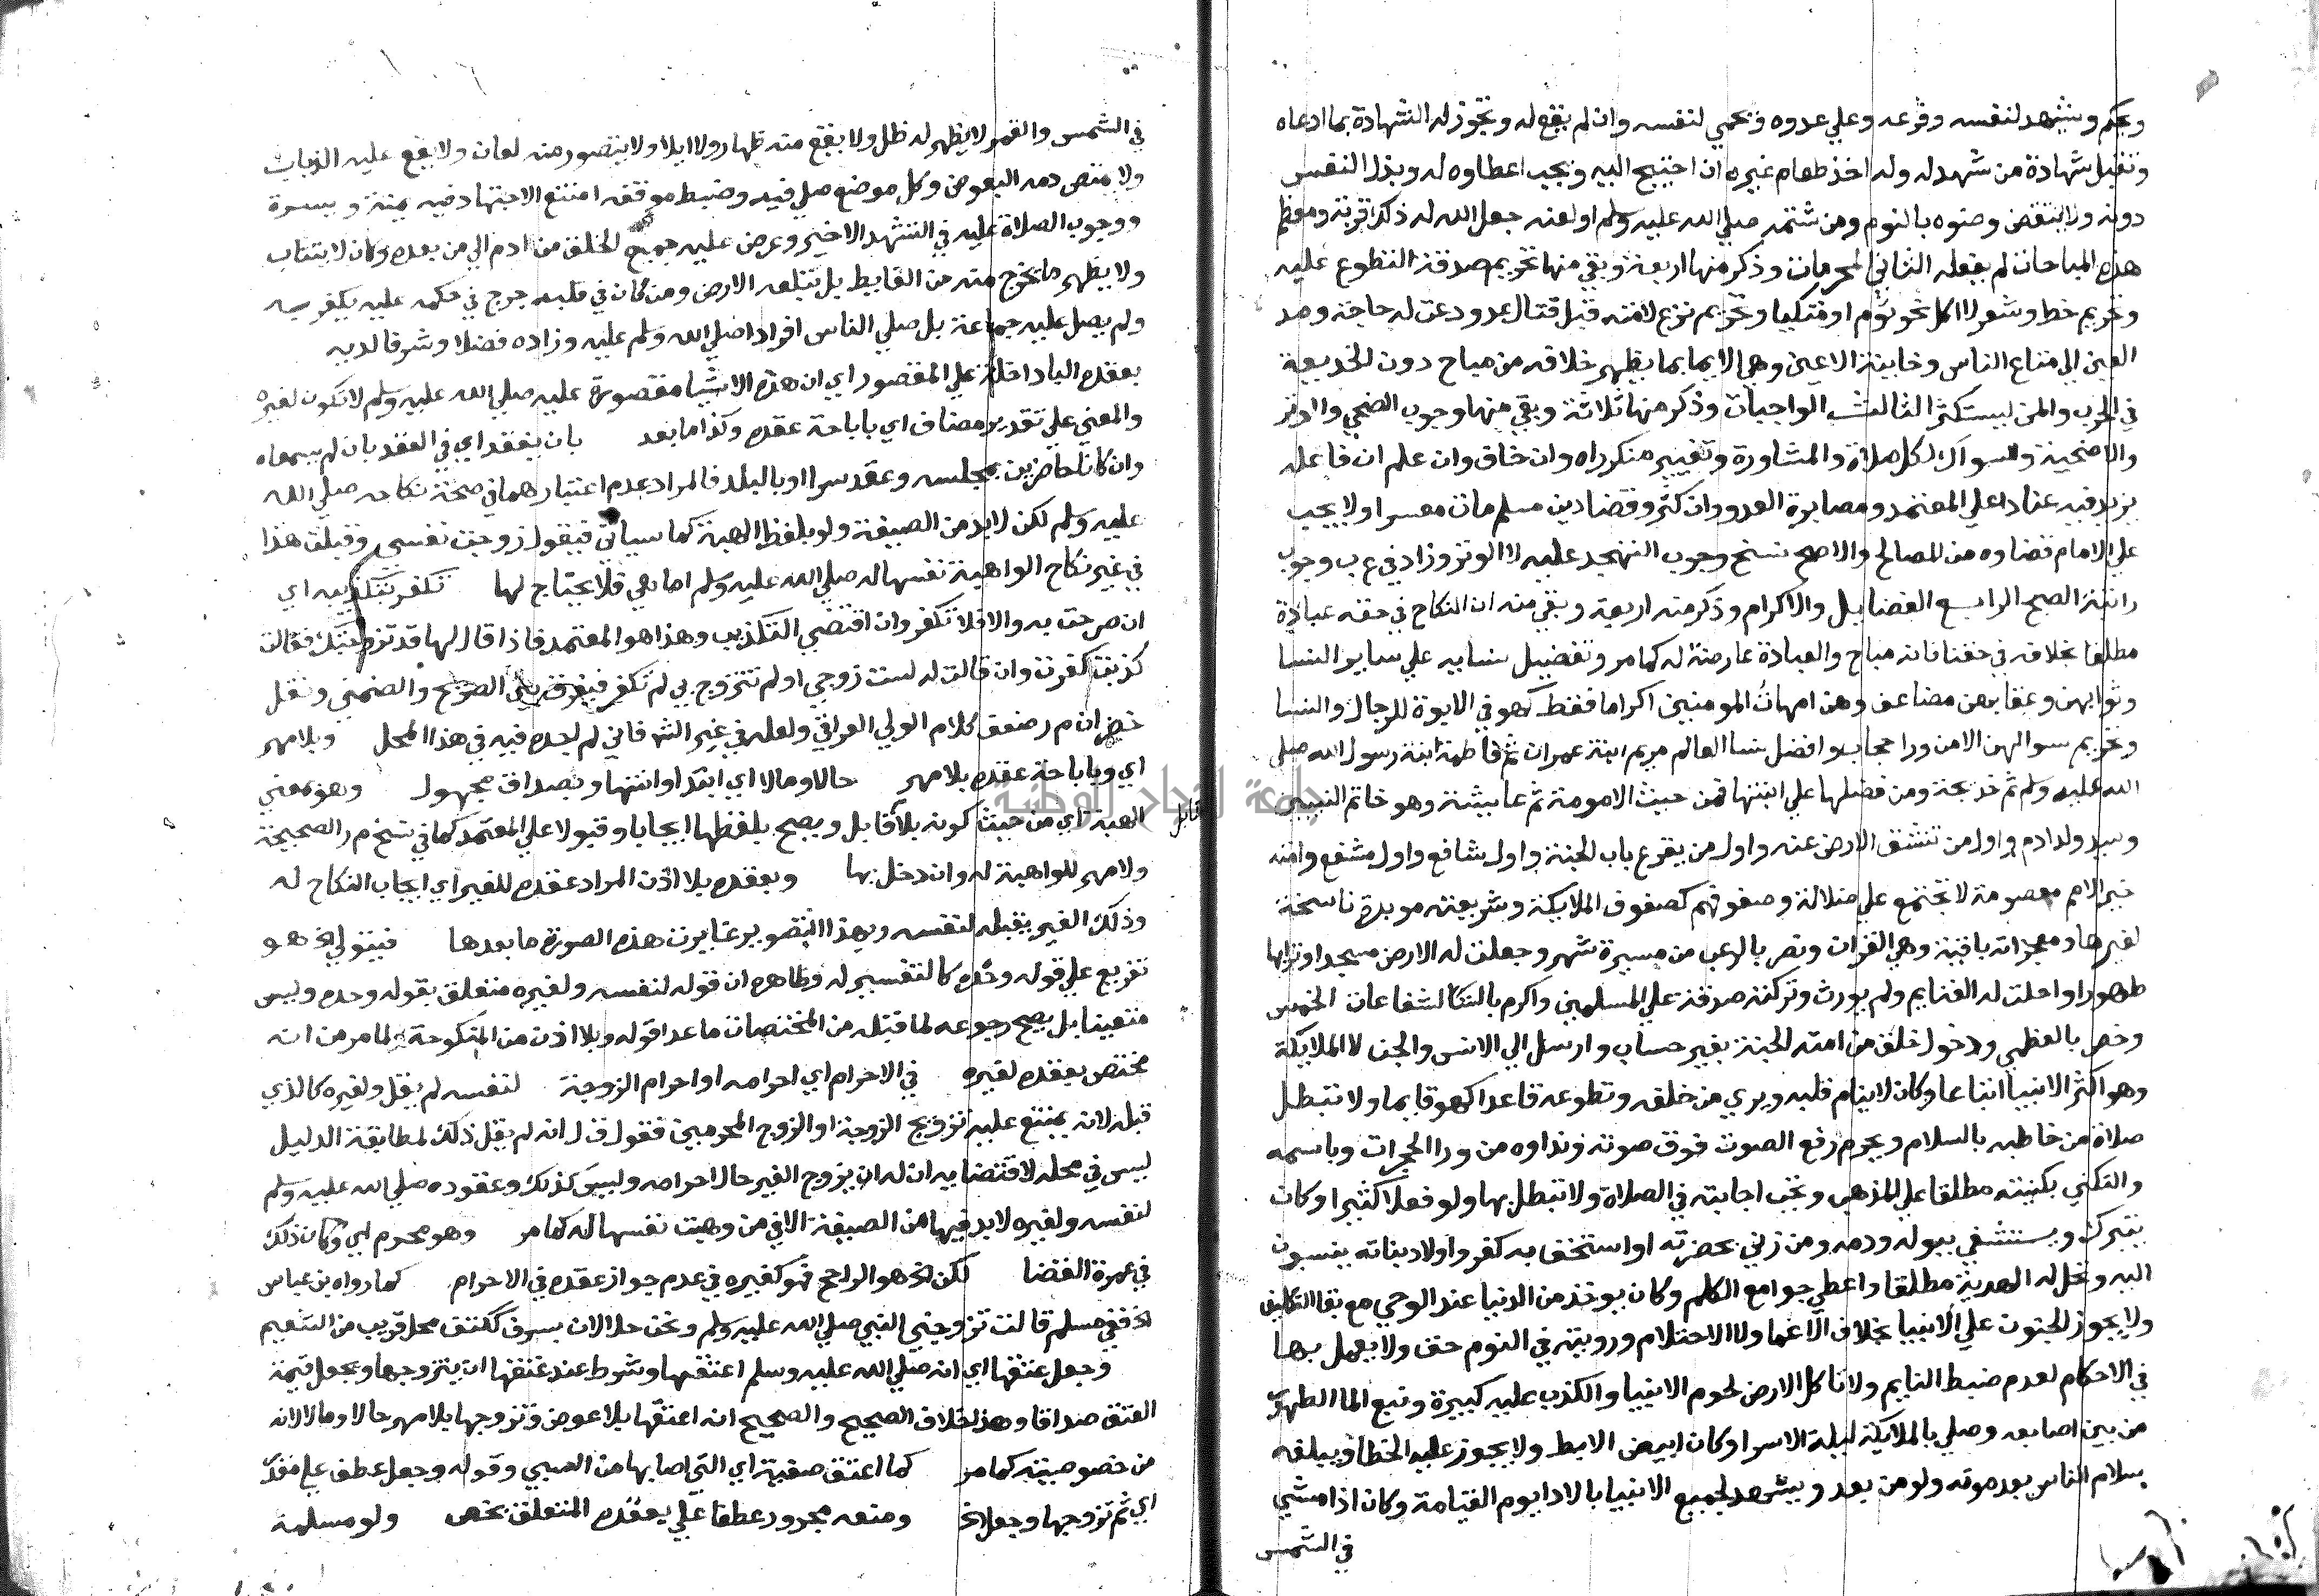 ويحكم ويشهد لنفسه وفرعه وعلي عدوه ويحمي لنفسه وان لم يقع له وتجوز له الشهادة بما ادعاه
وتقبل شهادة من شهد له وله اخذ طعام غيره ان احتيج اليه ويجب اعطاوه له وبذل النفس
دونه ولا ينتقض وضوه بالنوم ومن شتمه صلي الله عليه وسلم او لعنه جعل الله له ذلك قربة ومعظم
هذه المباحات لم يفعله الثاني المحرمات وذكر منها اربعة وبقي منها تحريم صدقة التطوع عليه
وتحريم خط وشعر لا اكل نحو ثوم او متكيا وتحريم نزع لامته قبل قتال عدو دعت له حاجة ومد
العين الي متاع الناس وخاينة الاعين وهي الايما بما يظهر خلافه من مباح دون الخديعة
في الحرب والمن ليستكثر الثالث الواجبات وذكر منها ثلاثة وبقي منها وجوب الضحي والوتر
والاضحية والسواك لكل صلاة والمشاورة وتغيير منكر راه وان خاف وان علم ان فاعله
يزيد فيه عنادا علي المعتمد ومصابرة العدو وان كثر وقضا دين مسلم مات معسرا ولا يجب
علي الامام قضاوه من المصالح والاصح نسخ وجوب التهجد عليه لا الوتر وزاد في عب وجوب
راتبة الصبح الرابع الفضايل والاكرام وذكر منه اربعة وبقي منه ان النكاح في حقه عبادة
مطلقا بخلافه في حقنا فانه مباح والعبادة عارضة له كما مر وتفضيل نسايه علي ساير النسا
وثوابهن وعقابهن مضاعف وهن امهات المومنين اكراما فقط كهو في الابوة للرجال والنسا
وتحريم سوالهن الا من ورا حجاب وافضل نسا العالم مريم ابنة عمران ثم فاطمة ابنة رسول الله صلي
الله عليه وسلم ثم خديجة ومن فضلها علي ابنتها فمن حيث الامومة ثم عايشة وهو خاتم النبيين
وسيد ولد ادم واول من تنشق الارض عنه واول من يقرع باب الجنة واول شافع واول مشفع وامته
خير الامم معصومة لا تجتمع علي ضلالة وصفوفهم كصفوف الملايكة وشريعته موبدة ناسخة
لغيرها ومعجزاته باقية وهي القران ونصر بالرعب من مسيرة شهر وجعلت له الارض مسجدا وترابها
طهورا واحلت له الغنايم ولم يورث وتركته صدقة علي المسلمين واكرم بالشفاعات الخمس
وخص بالعظمي ودخول خلق من امته الجنة بغير حساب وارسل الي الانس والجن لا الملايكة
وهو اكثر الانبيا اتباعا وكان لا ينام قلبه ويري من خلفه وتطوعه قاعدا كهو قايما ولا تبطل
صلاة من خاطبه بالسلام ويحرم رفع الصوت فوق صوته ونداوه من ورا الحجرات وباسمه
والتكني بكنيته مطلقا علي المذهب وتجب اجابته في الصلاة ولا تبطل بها ولو فعلا كثيرا وكان
يتبرك ويستشفي ببوله ودمه ومن زني بحضرته او استخف به كفر واولاد بناته ينسبون
اليه وتحل له الهدية مطلقا واعطي جوامع الكلم وكان يوخذ من الدنيا عند الوحي مع بقا التكليف
ولا يجوز الجنون علي الانبيا بخلاف الاغما ولا الاحتلام ورويته في النوم حق ولا يعمل بها
في الاحكام لعدم ضبط النايم ولا تاكل الارض لحوم الانبيا والكذب عليه كبيرة ونبع الما الطهور
من بين اصابعه وصلي بالملايكة ليلة الاسرا وكان ابيض الابط ولا يجوز عليه الخطا ويبلغه
سلام الناس بعد موته ولو من بعد ويشهد لجميع الانبيا بالاداء يوم القيامة وكان اذا مشي
في الشمس
في الشمس والقمر لا يظهر له ظل ولا يقع منه ظهار ولا ايلا ولا يتصور منه لعان ولا يقع عليه الذباب
ولا يمتص دمه البعوض وكل موضع صلي فيه وضبط موقفه امتنع الاجتهاد فيه يمنة ويسرة
ووجوب الصلاة عليه في التشهد الاخير وعرض عليه جميع الخلق من ادم الي من بعده وكان لا يتثاب
ولا يظهر ما يخرج منه من الغايط بل تبتلعه الارض ومن كان في قلبه حرج في حكمه عليه يكفر به
ولم يصل عليه جماعة بل صلي الناس افرادا صلي الله وسلم عليه وزاده فضلا وشرفا لديه
بعقده البا داخلة علي المقصور اي ان هذه الاشيا مقصورة عليه صلي الله عليه وسلم لا تكون لغيره
والمعني علي تقدير مضاف اي باباحة عقده وكذا ما بعد بان يعقد اي في العقد بان لم يسمعاه
وان كانا حاضرين بمجلسه وعقد سرا او بالبلد فالمراد عدم اعتبارهما في صحة نكاحه صلي الله
عليه وسلم لكن لا بد من الصيغة ولو بلفظ الهبة كما سياتي فيقول زوجت نفسي وقبلت هذا
في غير نكاح الواهبة نفسها له صلي الله عليه وسلم اما هي فلا يحتاج لها تكفر بتكذيبه اي
ان صرحت به والا فلا تكفر وان اقتضي التكذيب وهذا هو المعتمد فاذا قال لها قد تزوجتك فقالت
كذبت كفرت وان قالت له لست زوجي او لم تتزوج بي لم تكفر فيفرق بين الصريح والضمني ونقل
خضر ان م ر ضعف كلام الولي العراقي ولعله في غير الشرح فاني لم اجده فيه في هذا المحل وبلا مهر
اي وباباحة عقده بلا مهر حالا ومالا اي ابتدا وانتها وبصداق مجهول وهو بمعني
الهبة اي من حيث كونه بلا مقابل ويصح بلفظها ايجابا وقبولا علي المعتمد كما في نسخ م ر الصحيحة
ولا مهر للواهبة له وان دخل بها وبعقده بلا اذن المراد عقده للغير اي ايجاب النكاح له
وذلك الغير يقبله لنفسه وبهذا التصوير غايرت هذه الصورة ما بعدها فيتولي الخ هو
تفريع علي قوله وحده كالتفسير له وظاهره ان قوله لنفسه ولغيره متعلق بقوله وحده وليس
متعينا بل يصح رجوعه لما قبله من المختصات ما عدا قوله وبلا اذن من المنكوحة لما مر من انه
مختص بعقده لغيره في الاحرام اي احرامه او احرام الزوجة لنفسه لم يقل ولغيره كالذي
قبله لانه يمتنع عليه تزويج الزوجة او الزوج المحرمين فقول ق ل انه لم يقل ذلك لمطابقة الدليل
ليس في محله لاقتضايه ان له ان يزوج الغير حال احرامه وليس كذلك وعقوده صلي الله عليه وسلم
لنفسه ولغيره لا بد فيها من الصيغة الا في من وهبت نفسها له كما مر وهو محرم اي وكان ذلك
في عمرة القضا لكن الخ هو الراجح فهو كغيره في عدم جواز عقده في الاحرام كما رواه بن عباس
الخ ففي مسلم قالت تزوجني النبي صلي الله عليه وسلم ونحن حلالان بسرف ككتف محل قريب من التنعيم
وجعل عتقها اي انه صلي الله عليه وسلم اعتقها وشرط عند عتقها ان يتزوجها ويجعل قيمة
العتق صداقا وهذا خلاف الصحيح والصحيح انه اعتقها بلا عوض وتزوجها بلا مهر حالا ومالا لانه
من خصوصيته كما مر كما اعتق صفية اي التي اصابها من السبي وقوله وجعل عطف علي مقدر
اي ثم تزوجها وجعل الخ ومنعه مجرور عطفا علي بعقده المتعلق بخص ولو مسلمة
جامعة النجاح الوطنية